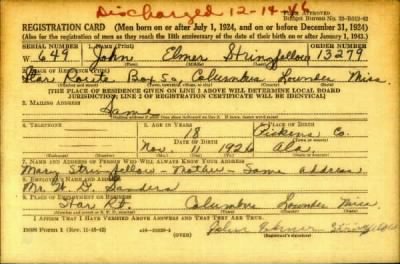 Discharged 12-14-46
REGISTRATION CARD (Men born on or after July 1, 1924, and on or before December 31, 1924)
(Also for the registration of men as they reach the 18th anniversary of the date of their birth on or after January 1, 1943.)
SERIAL NUMBER 1. NAME (Print) ORDER NUMBER
W 649 John Elmer Stringfellow 13279
2. PLACE OF RESIDENCE (Print)
Star Route Box 50 Columbus Lowndes Miss.
[THE PLACE OF RESIDENCE GIVEN ON LINE 2 ABOVE WILL DETERMINE LOCAL BOARD
JURISDICTION; LINE 2 OF REGISTRATION CERTIFICATE WILL BE IDENTICAL]
3. MAILING ADDRESS
Same
4. TELEPHONE 5. AGE IN YEARS 6. PLACE OF BIRTH
18 Pickens Co.
DATE OF BIRTH
Nov. 11 1926 Ala.
7. NAME AND ADDRESS OF PERSON WHO WILL ALWAYS KNOW YOUR ADDRESS
Mary Stringfellow - Mother - Same address
8. EMPLOYER'S NAME AND ADDRESS
Mr. W. D. Sanders
9. PLACE OF EMPLOYMENT OR BUSINESS
Star Rt. Columbus Lowndes Miss
I AFFIRM THAT I HAVE VERIFIED ABOVE ANSWERS AND THAT THEY ARE TRUE.
DSS Form 1 (Rev. 11-16-42) (over) John Elmer Stringfellow